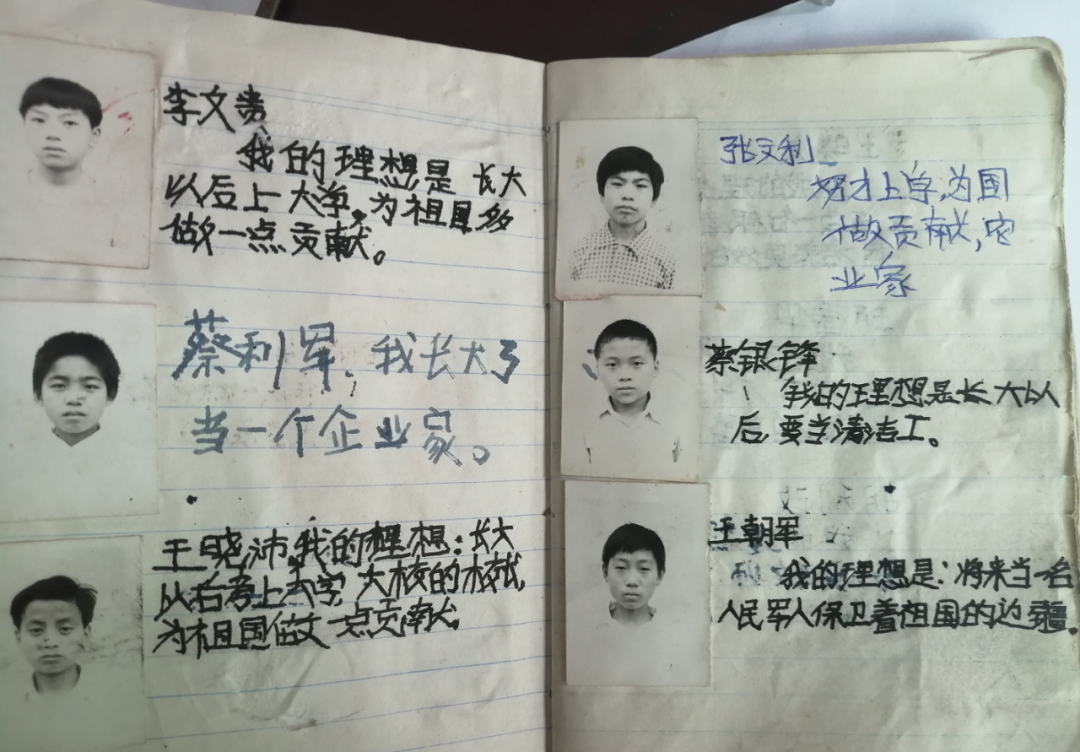 李文贵
我的理想是长大
以后上大学,为祖国多
做一点贡献。
蔡利军,我长大了
当一个企业家。
王晓沛,我的理想:长大
以后考上大学 大校的校
为祖国做一点贡献。
张文利
努才上学,为国
做贡献,农
业家
蔡银锋
我的理想是长大以
后,要当清洁工。
王朝军
我的理想是:将来当一名
人民军人保卫着祖国的边疆。